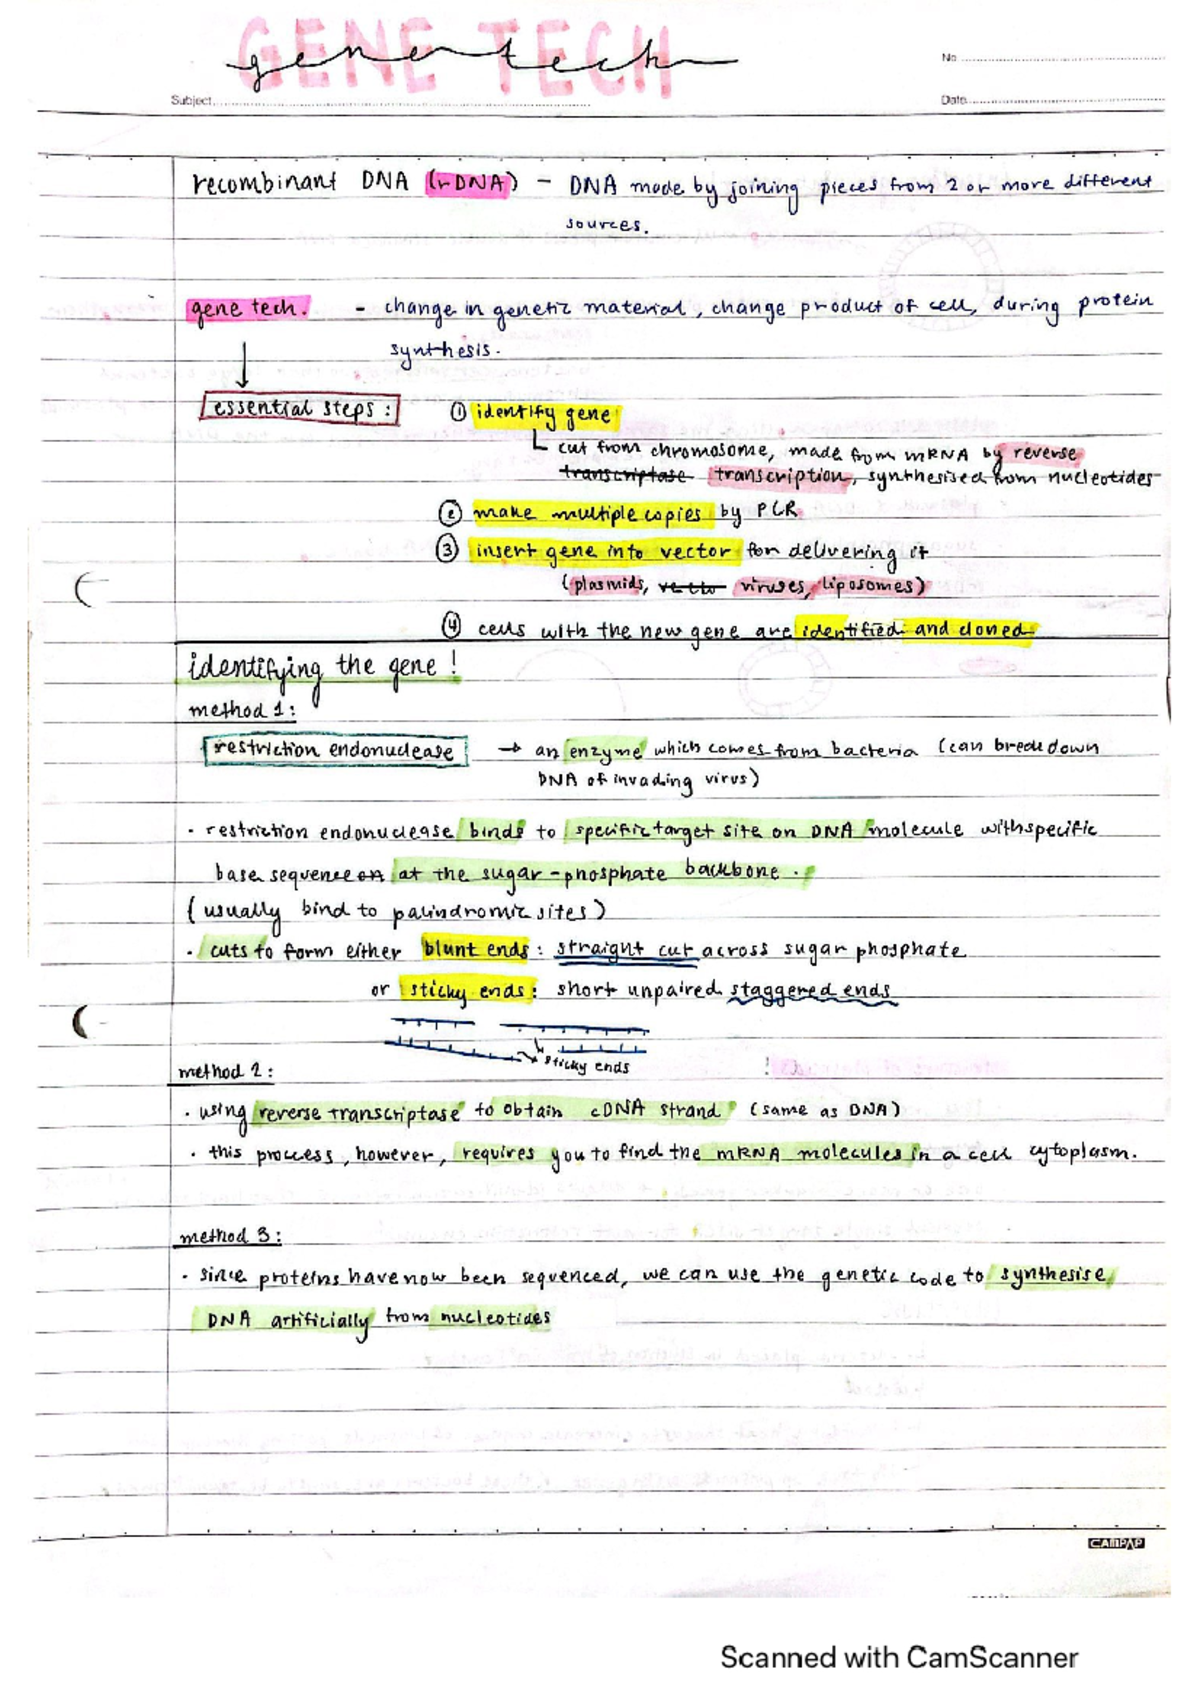 GENE TECH
gene tech
No
Subject
Date
recombinant DNA (rDNA) - DNA made by joining pieces from 2 or more different
sources.
gene tech. - change in genetic material, change product of cell, during protein
synthesis.
essential steps: ① identify gene
cut from chromosome, made from mRNA by reverse
transcriptase transcription, synthesised from nucleotides
② make multiple copies by PCR
③ insert gene into vector for delivering it
(plasmids, vecto viruses, liposomes)
④ cells with the new gene are identified and cloned
identifying the gene!
method 1:
restriction endonuclease → an enzyme which comes from bacteria (can breakdown
DNA of invading virus)
• restriction endonuclease binds to specific target site on DNA molecule with specific
base sequence on at the sugar-phosphate backbone.
(usually bind to palindromic sites)
• cuts to form either blunt ends: straight cut across sugar phosphate
or sticky ends: short unpaired staggered ends
sticky ends
method 2:
• using reverse transcriptase to obtain cDNA strand (same as DNA)
• this process, however, requires you to find the mRNA molecules in a cell cytoplasm.
method 3:
• since proteins have now been sequenced, we can use the genetic code to synthesise
DNA artificially from nucleotides
CAMPAP
Scanned with CamScanner